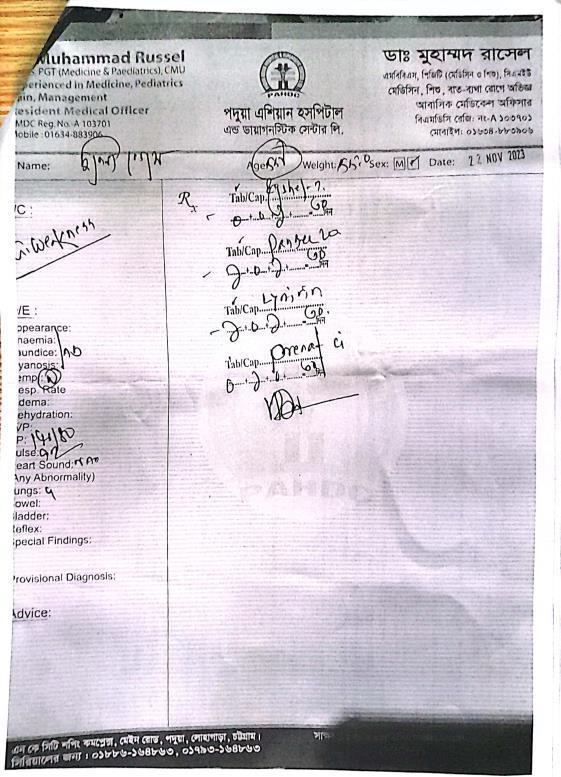 Muhammad Russel
PGT (Medicine & Paediatrics), CMU
perienced in Medicine, Pediatrics
ain, Management
esident Medical Officer
MDC Reg. No. A 103701
obile : 01634-883906
PAHDC
পদুয়া এশিয়ান হসপিটাল
এন্ড ডায়াগনস্টিক সেন্টার লি.
ডাঃ মুহাম্মদ রাসেল
এমবিবিএস, পিজিটি (মেডিসিন ও শিশু), সিএমইউ
মেডিসিন, শিশু, বাত-ব্যথা রোগে অভিজ্ঞ
আবাসিক মেডিকেল অফিসার
বিএমডিসি রেজি: নং-A ১০৩৭০১
মোবাইল: ০১৬৩৪-৮৮৩৯০৬
Name: Age: Weight: Sex: M F Date: 22 NOV 2023
/C :
weakness
/E :
ppearance:
naemia:
aundice: NO
yanosis:
emp: N
esp. Rate
dema:
ehydration:
VP:
P: 140/80
ulse: 92
eart Sound:
Any Abnormality)
ungs:
owel:
ladder:
eflex:
pecial Findings:
rovisional Diagnosis:
Advice:
Rx
Tab/Cap.
দিন
Tab/Cap.
দিন
Tab/Cap.
দিন
Tab/Cap.
দিন
PAHDC
এন কে সিটি শপিং কমপ্লেক্স, মেইন রোড, পদুয়া, লোহাগাড়া, চট্টগ্রাম।
সিরিয়ালের জন্য : ০১৮৮৬-১৬৪৮৬৩, ০১৭৯৩-১৬৪৮৬৩